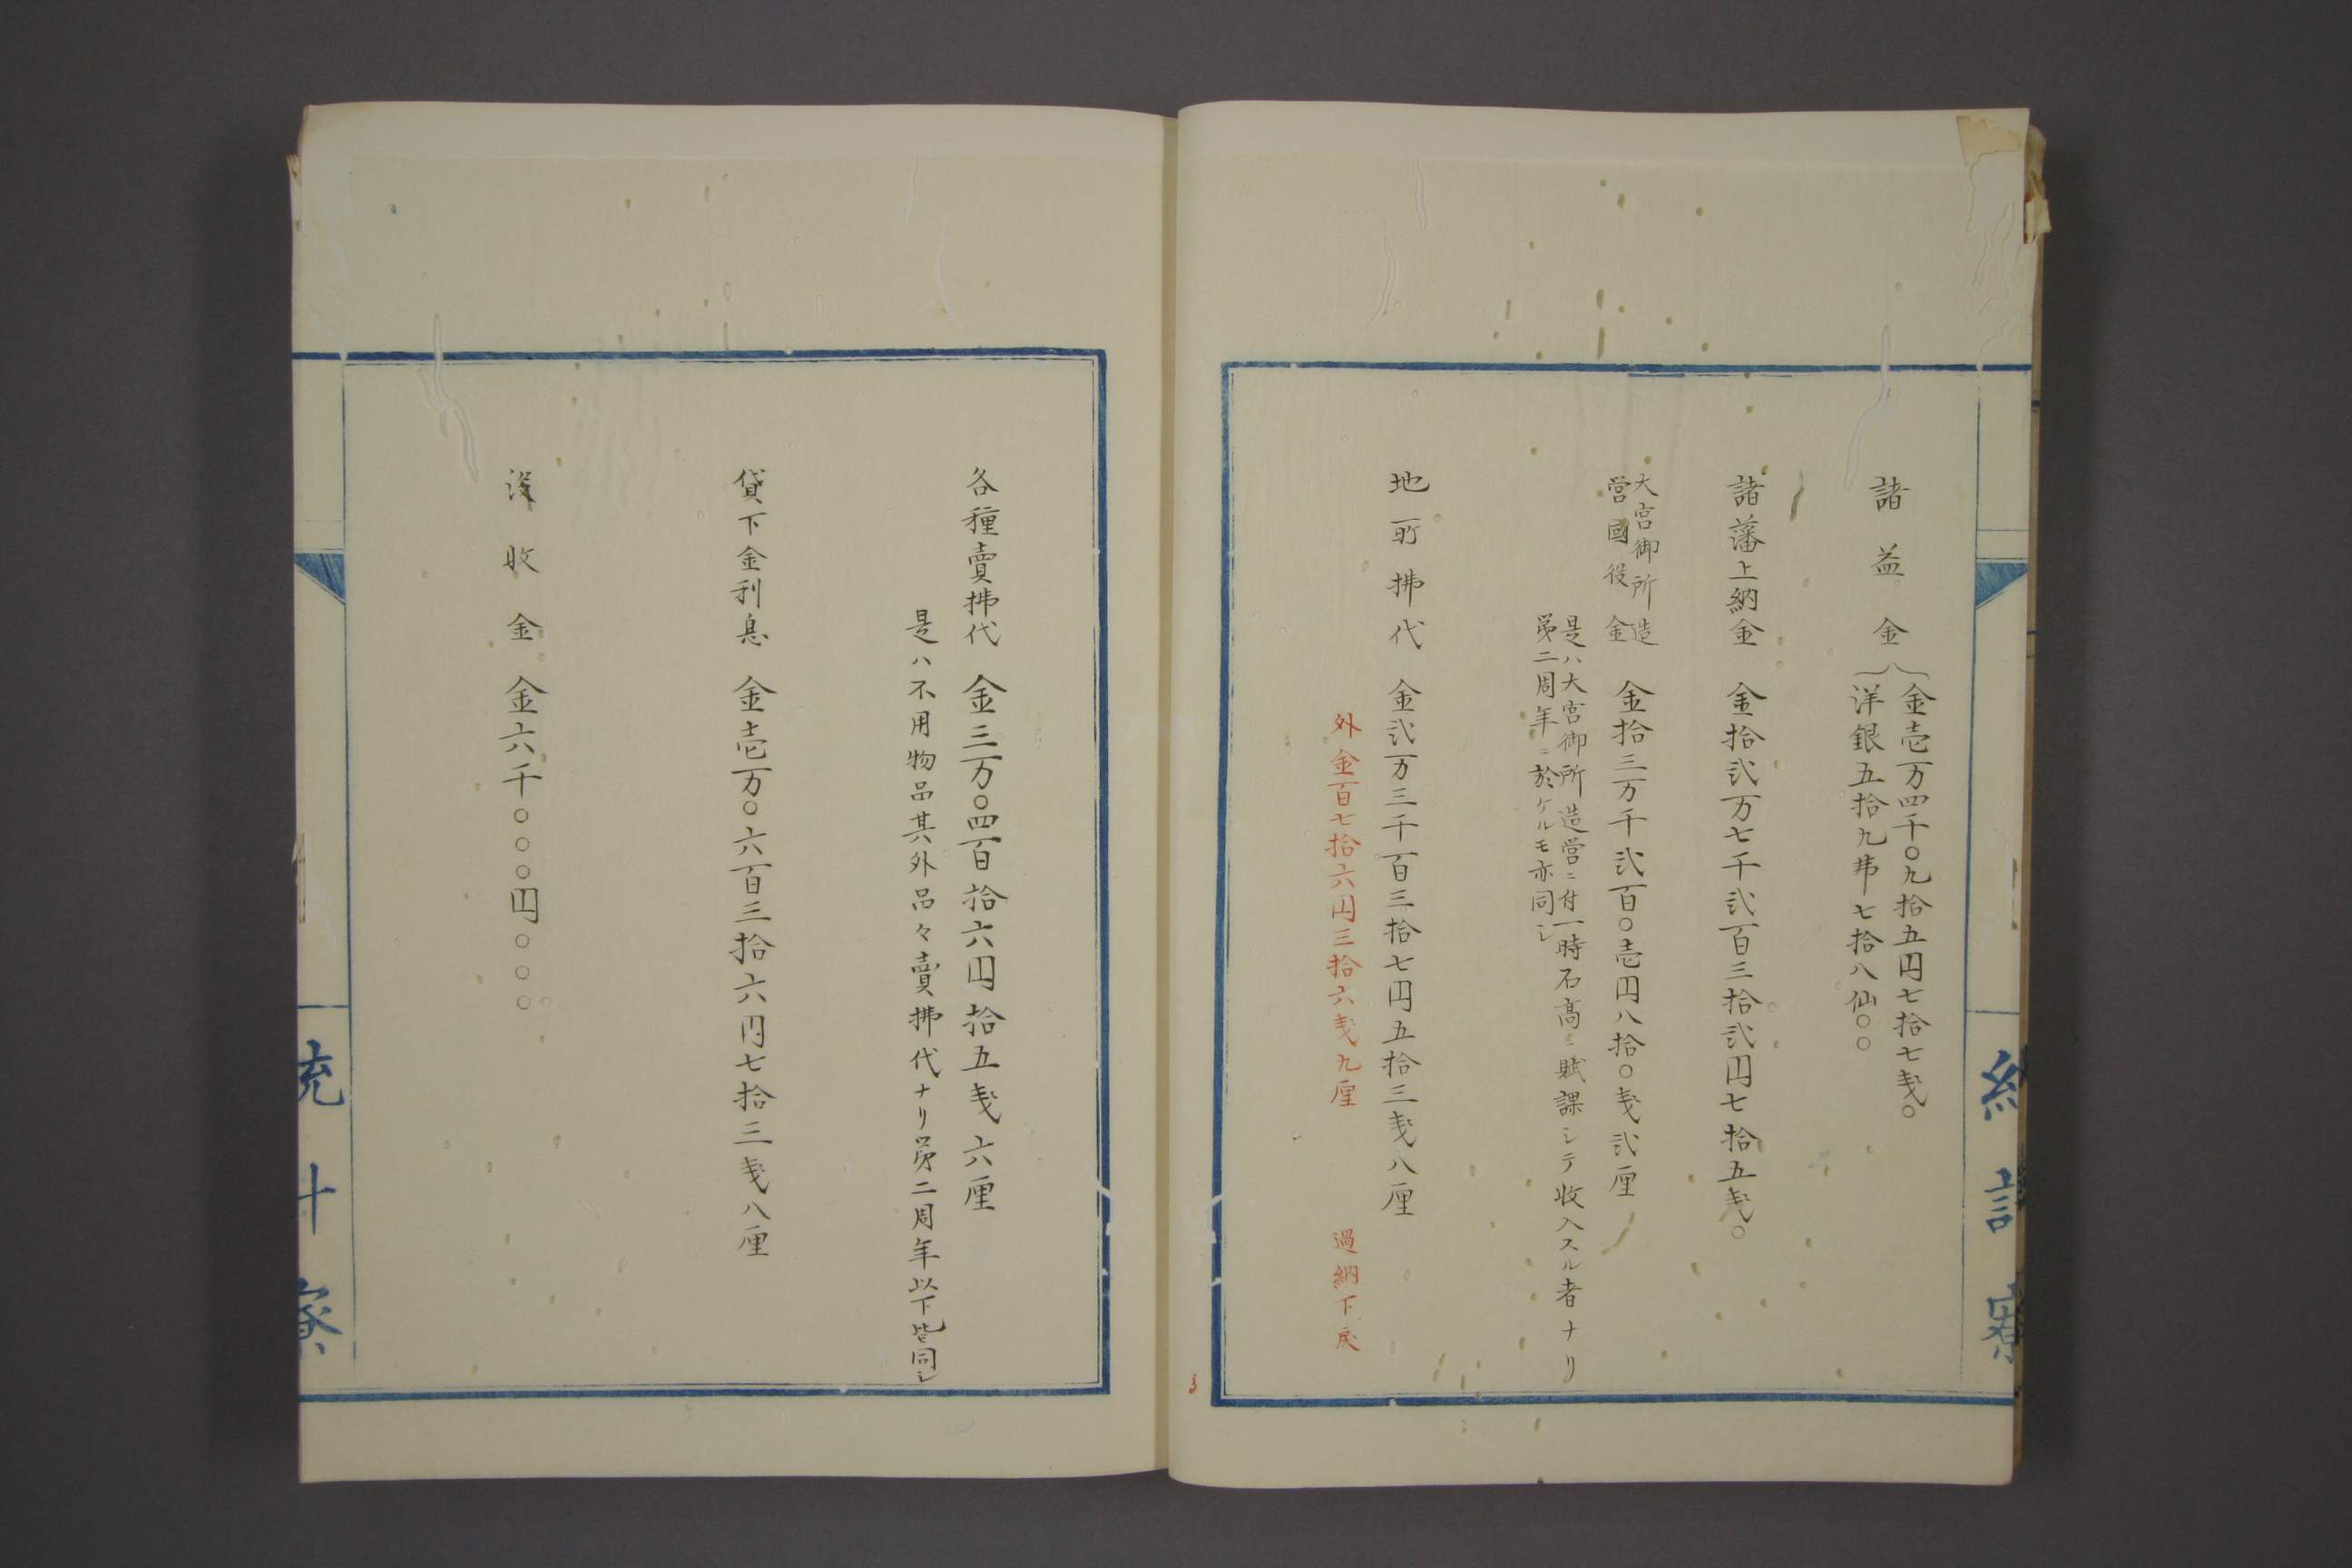 諸益金
金壱万四千〇九拾五円七拾七戔〇
洋銀五拾九弗七拾八仙〇〇
諸藩上納金 金拾弐万七千弐百三拾弐円七拾五戔〇
大宮御所造
営國役金 金拾三万千弐百〇壱円八拾〇戔弐厘
是ハ大宮御所造営ニ付一時石高ニ賦課シテ收入スル者ナリ
第二周年ニ於ケルモ亦同シ
地所拂代 金弐万三千百三拾七円五拾三戔八厘
外金百七拾六円三拾六戔九厘 過納下戻
各種賣拂代 金三万〇四百拾六円拾五戔六厘
是ハ不用物品其外品々賣拂代ナリ第二周年以下皆同シ
貸下金利息 金壱万〇六百三拾六円七拾三戔八厘
没收金 金六千〇〇〇円〇〇〇
統計寮